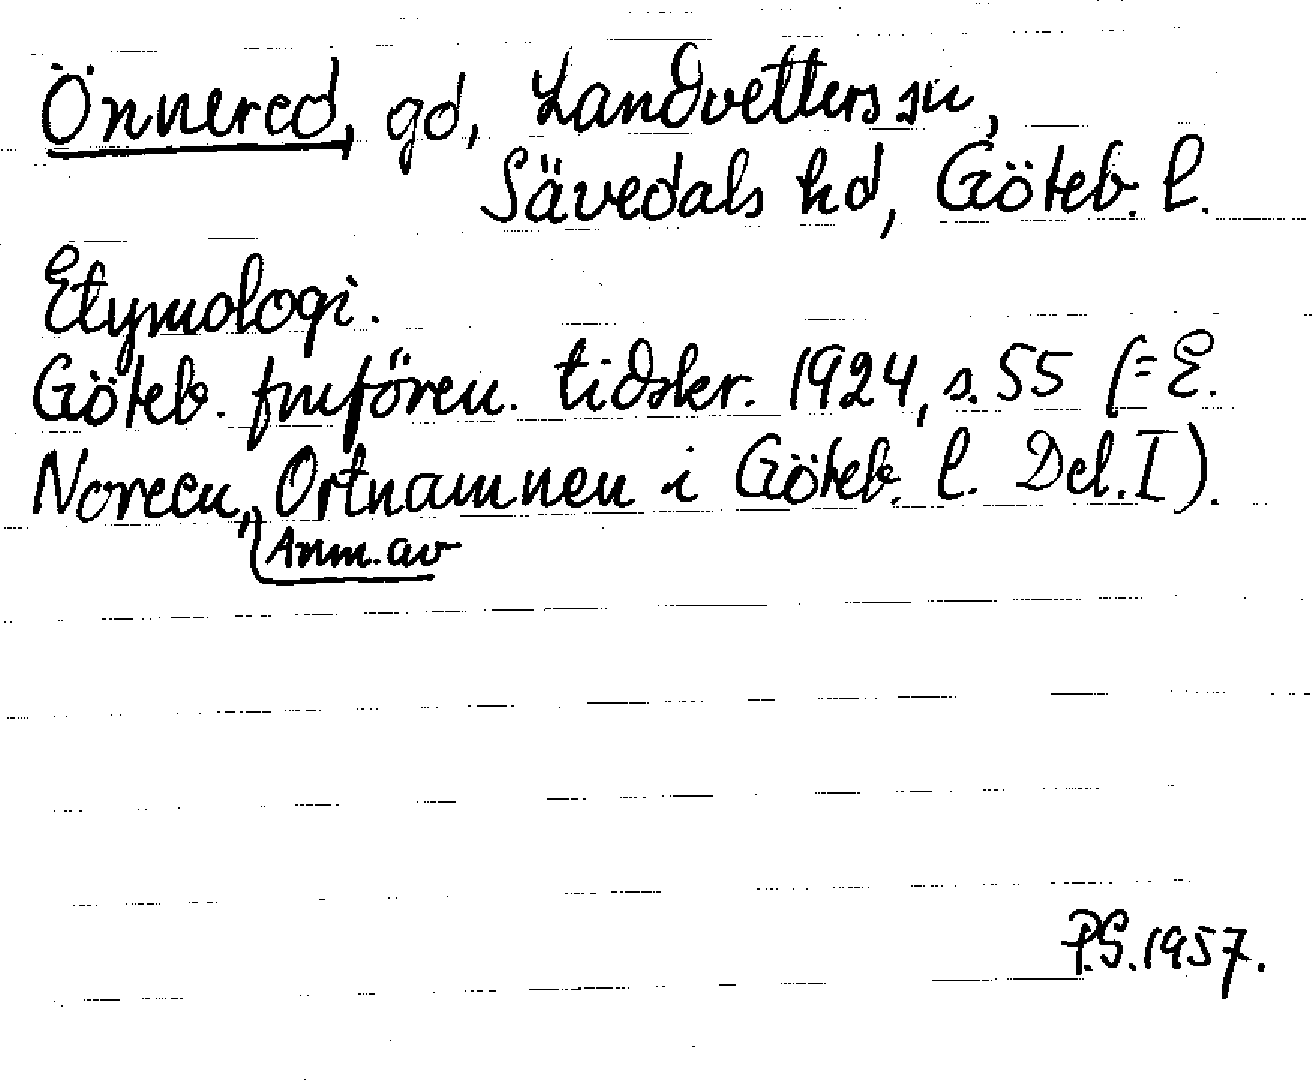 Önnered, gd, Landvetters sn,
Sävedals hd, Göteb. l.
Etymologi.
Göteb. fmfören. tidskr. 1924, s. 55 (= E.
Noreen, Ortnamnen i Göteb. l. Del. I).
Anm. av
P.S. 1957.